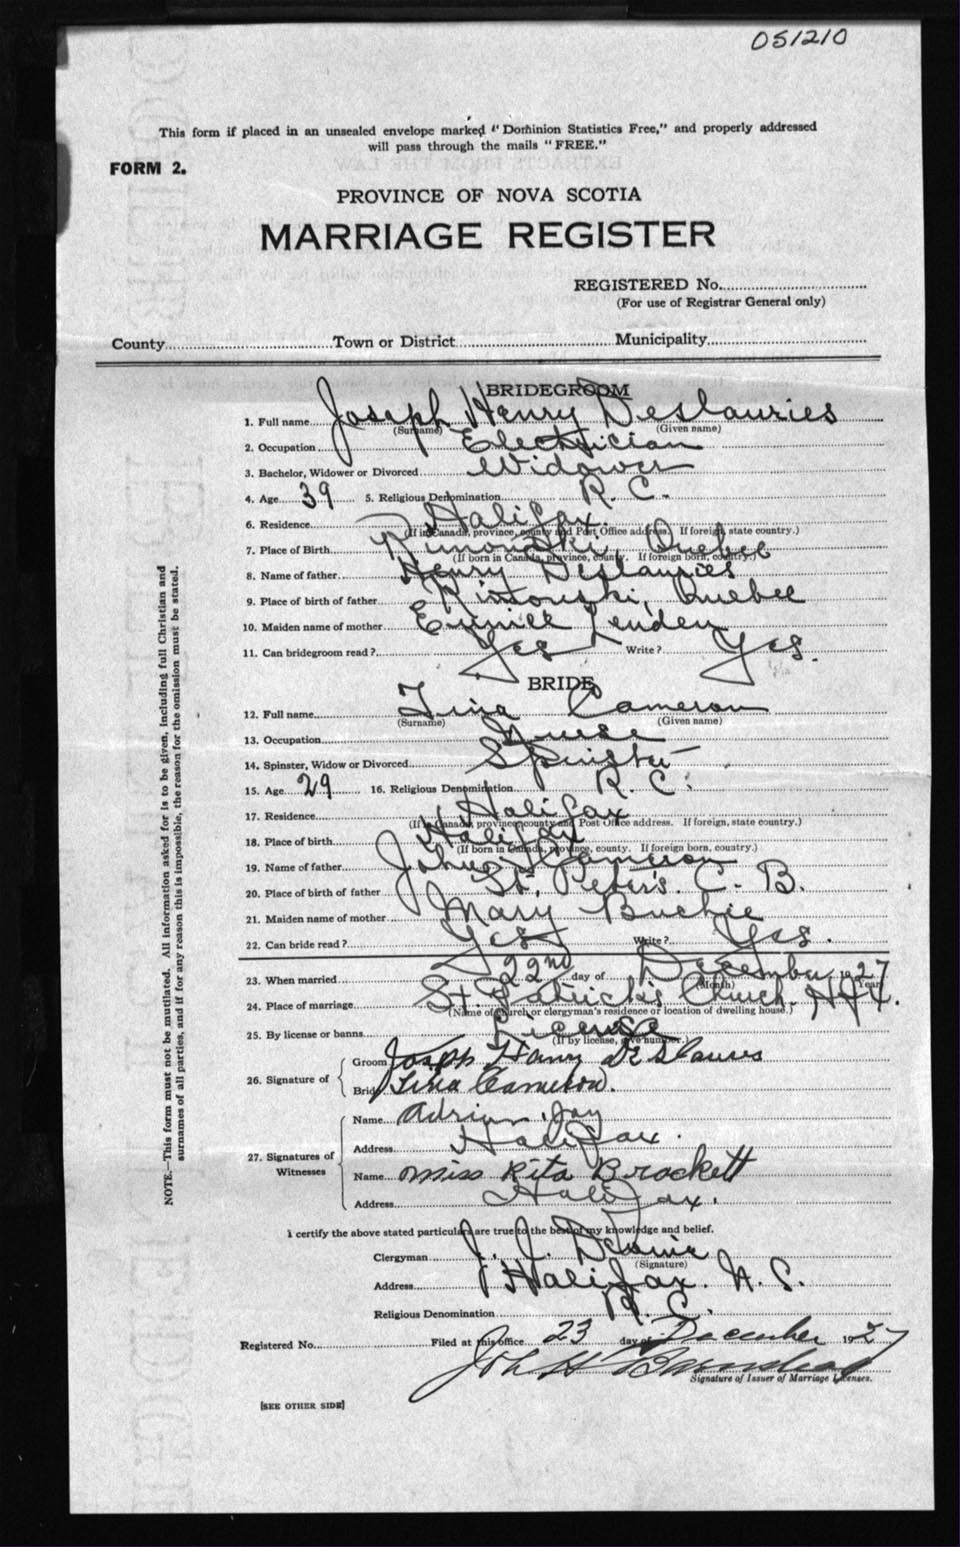 051210
This form if placed in an unsealed envelope marked "Dominion Statistics Free," and properly addressed
will pass through the mails "FREE."
FORM 2.
PROVINCE OF NOVA SCOTIA
MARRIAGE REGISTER
REGISTERED No.
(For use of Registrar General only)
County Town or District Municipality
BRIDEGROOM
1. Full name Joseph Henry Deslauries
(Surname) (Given name)
2. Occupation Electrician
3. Bachelor, Widower or Divorced Widower
4. Age 39 5. Religious Denomination R. C.
6. Residence Halifax.
(If in Canada, province, county and Post Office address. If foreign, state country.)
7. Place of Birth Quebec
(If born in Canada, province, county. If foreign born, country.)
8. Name of father Henry Deslauries
9. Place of birth of father Rimouski, Quebec
10. Maiden name of mother
11. Can bridegroom read? Yes Write? Yes.
BRIDE
12. Full name Tina Cameron
(Surname) (Given name)
13. Occupation Nurse
14. Spinster, Widow or Divorced Spinster
15. Age 29 16. Religious Denomination R. C.
17. Residence Halifax
(If in Canada, province, county and Post Office address. If foreign, state country.)
18. Place of birth Halifax
(If born in Canada, province, county. If foreign born, country.)
19. Name of father John Cameron
20. Place of birth of father St. Peter's. C. B.
21. Maiden name of mother Mary Buckie
22. Can bride read? Yes Write? Yes.
23. When married 22nd day of December 1927
(Month) (Year)
24. Place of marriage St. Patrick's Church. Hfx.
(Name of church or clergyman's residence or location of dwelling house.)
25. By license or banns License
(If by license, give number.)
26. Signature of Groom Joseph Henry Deslaures
Bride Tina Cameron.
27. Signatures of Witnesses Name Adrian Jay
Address Halifax.
Name Miss Rita Brockett
Address Halifax.
I certify the above stated particulars are true to the best of my knowledge and belief.
Clergyman J. J.
(Signature)
Address Halifax. N. S.
Religious Denomination R. C.
Registered No. Filed at this office 23 day of December 1927
John H Barnstead
Signature of Issuer of Marriage Licenses.
[SEE OTHER SIDE]
NOTE.—This form must not be mutilated. All information asked for is to be given, including full Christian and
surnames of all parties, and if for any reason this is impossible, the reason for the omission must be stated.